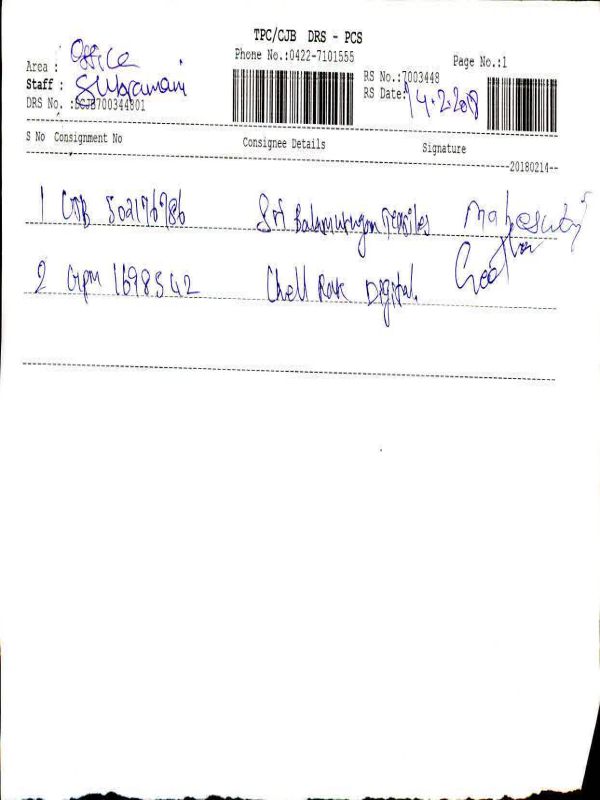 TPC/CJB DRS - PCS
Phone No.:0422-7101555
Page No.:1
Area : Office
Staff : Subramani
RS No.:7003448
RS Date: 14.2.2018
DRS No. :DCJB700344801
S No Consignment No Consignee Details Signature
20180214
1 CJB 502176786 Sri Balamurugan Textiles
2 Grpm 1698542 Chell Rak Digital.